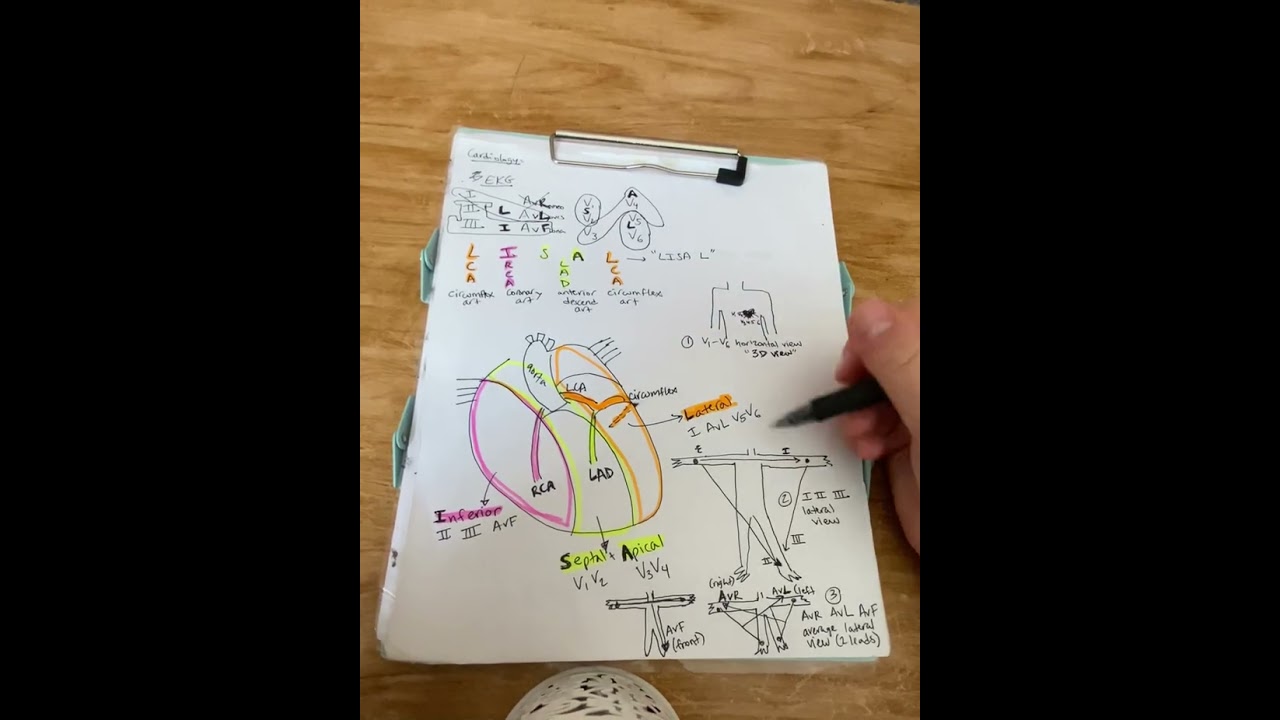 Cardiology
EKG
I AvR
II L AvL
III I AvF
V1 S V2 V3
A V4 V5 L V6
L I S A L → "LISA L"
C R L C
A C A A
A D
circumflex coronary anterior circumflex
art art descend art
art
① V1-V6 horizontal view
"3D view"
aorta
LCA
circumflex
Lateral
I AvL V5V6
RCA
LAD
Inferior
II III AvF
Septal + Apical
V1 V2 V3V4
I
② I II III
lateral
view
III
II
(right)
AvR AvL (left
③
AvR AvL AvF
average lateral
view (2 leads)
AvF
(front)